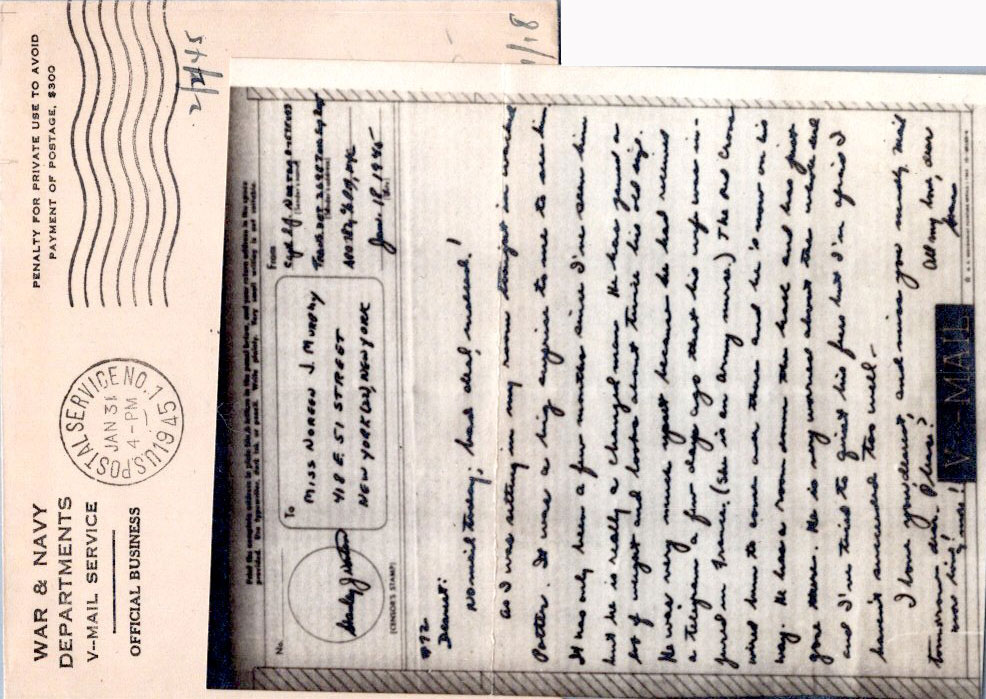 WAR & NAVY
DEPARTMENTS
V--MAIL SERVICE
OFFICIAL BUSINESS
U.S. POSTAL SERVICE NO. 1
JAN 31
4-PM
1945
PENALTY FOR PRIVATE USE TO AVOID
PAYMENT OF POSTAGE, $300
2/2/45
1/18
Print the complete address in plain block letters in the panel below, and your return address in the space
provided. Use typewriter, dark ink, or pencil. Very small writing is not suitable.
No.
(CENSOR'S STAMP)
To
MISS NOREEN J. MURPHY
418 E. 51 STREET
NEW YORK (22), NEW YORK
From
(Sender's name)
(Sender's address)
Jan. 18, 1945
#72
Dearest:
No mail today; bad deal, indeed!
As I was sitting in my room tonight in walked
Potter. It was a big surprise to me to see him.
It has only been a few months since I've seen him
but he is really a changed man. He has gained a
lot of weight and looks about twice his old age.
He was very much upset because he had received
a telegram a few days ago that his wife was in-
jured in France. (She is an army nurse.) The Red Cross
wired him to come over there and he is now on his
way. He has a room down the hall and has just
gone there. He is very worried about the whole deal
and I've tried to quiet his fears but I'm afraid I
haven't succeeded too well.
I love you, dearest and miss you madly. Mail
tomorrow, dear. Please!
All my love, dear
V···-MAIL